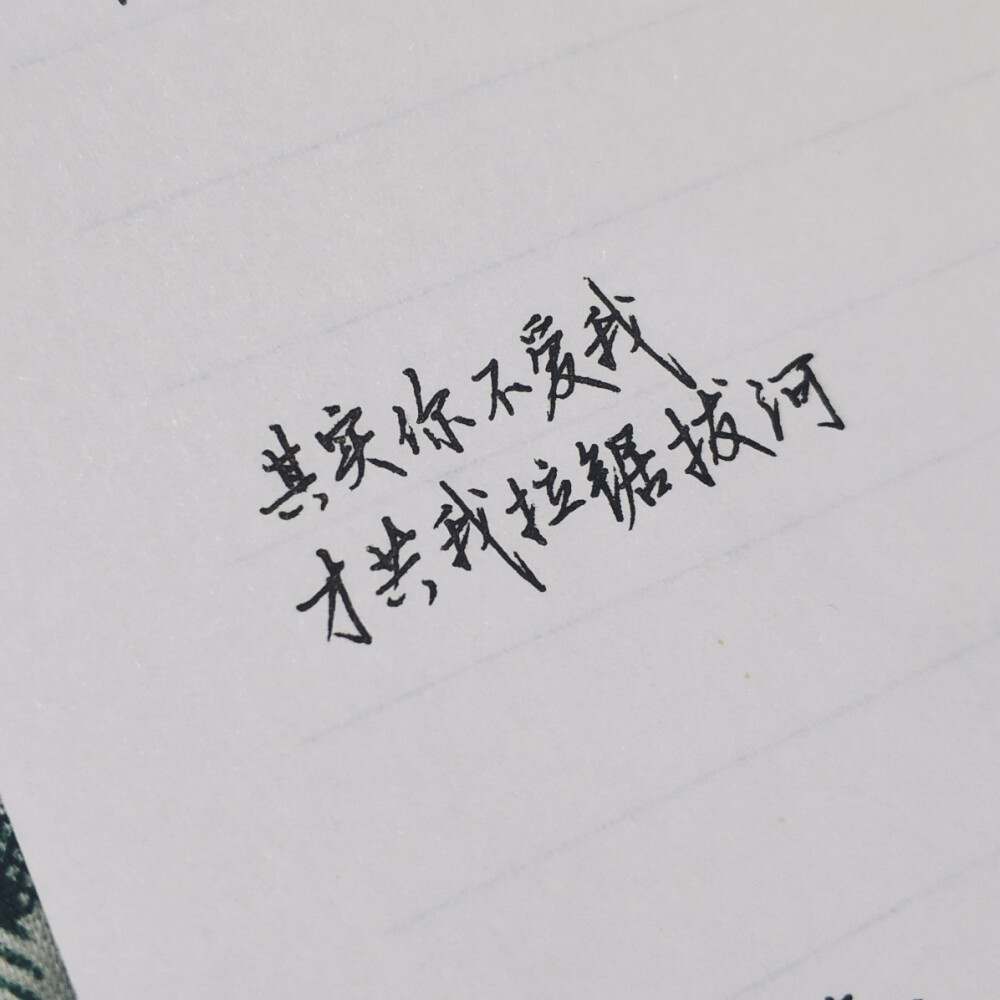 其实你不爱我
才共我拉锯拔河